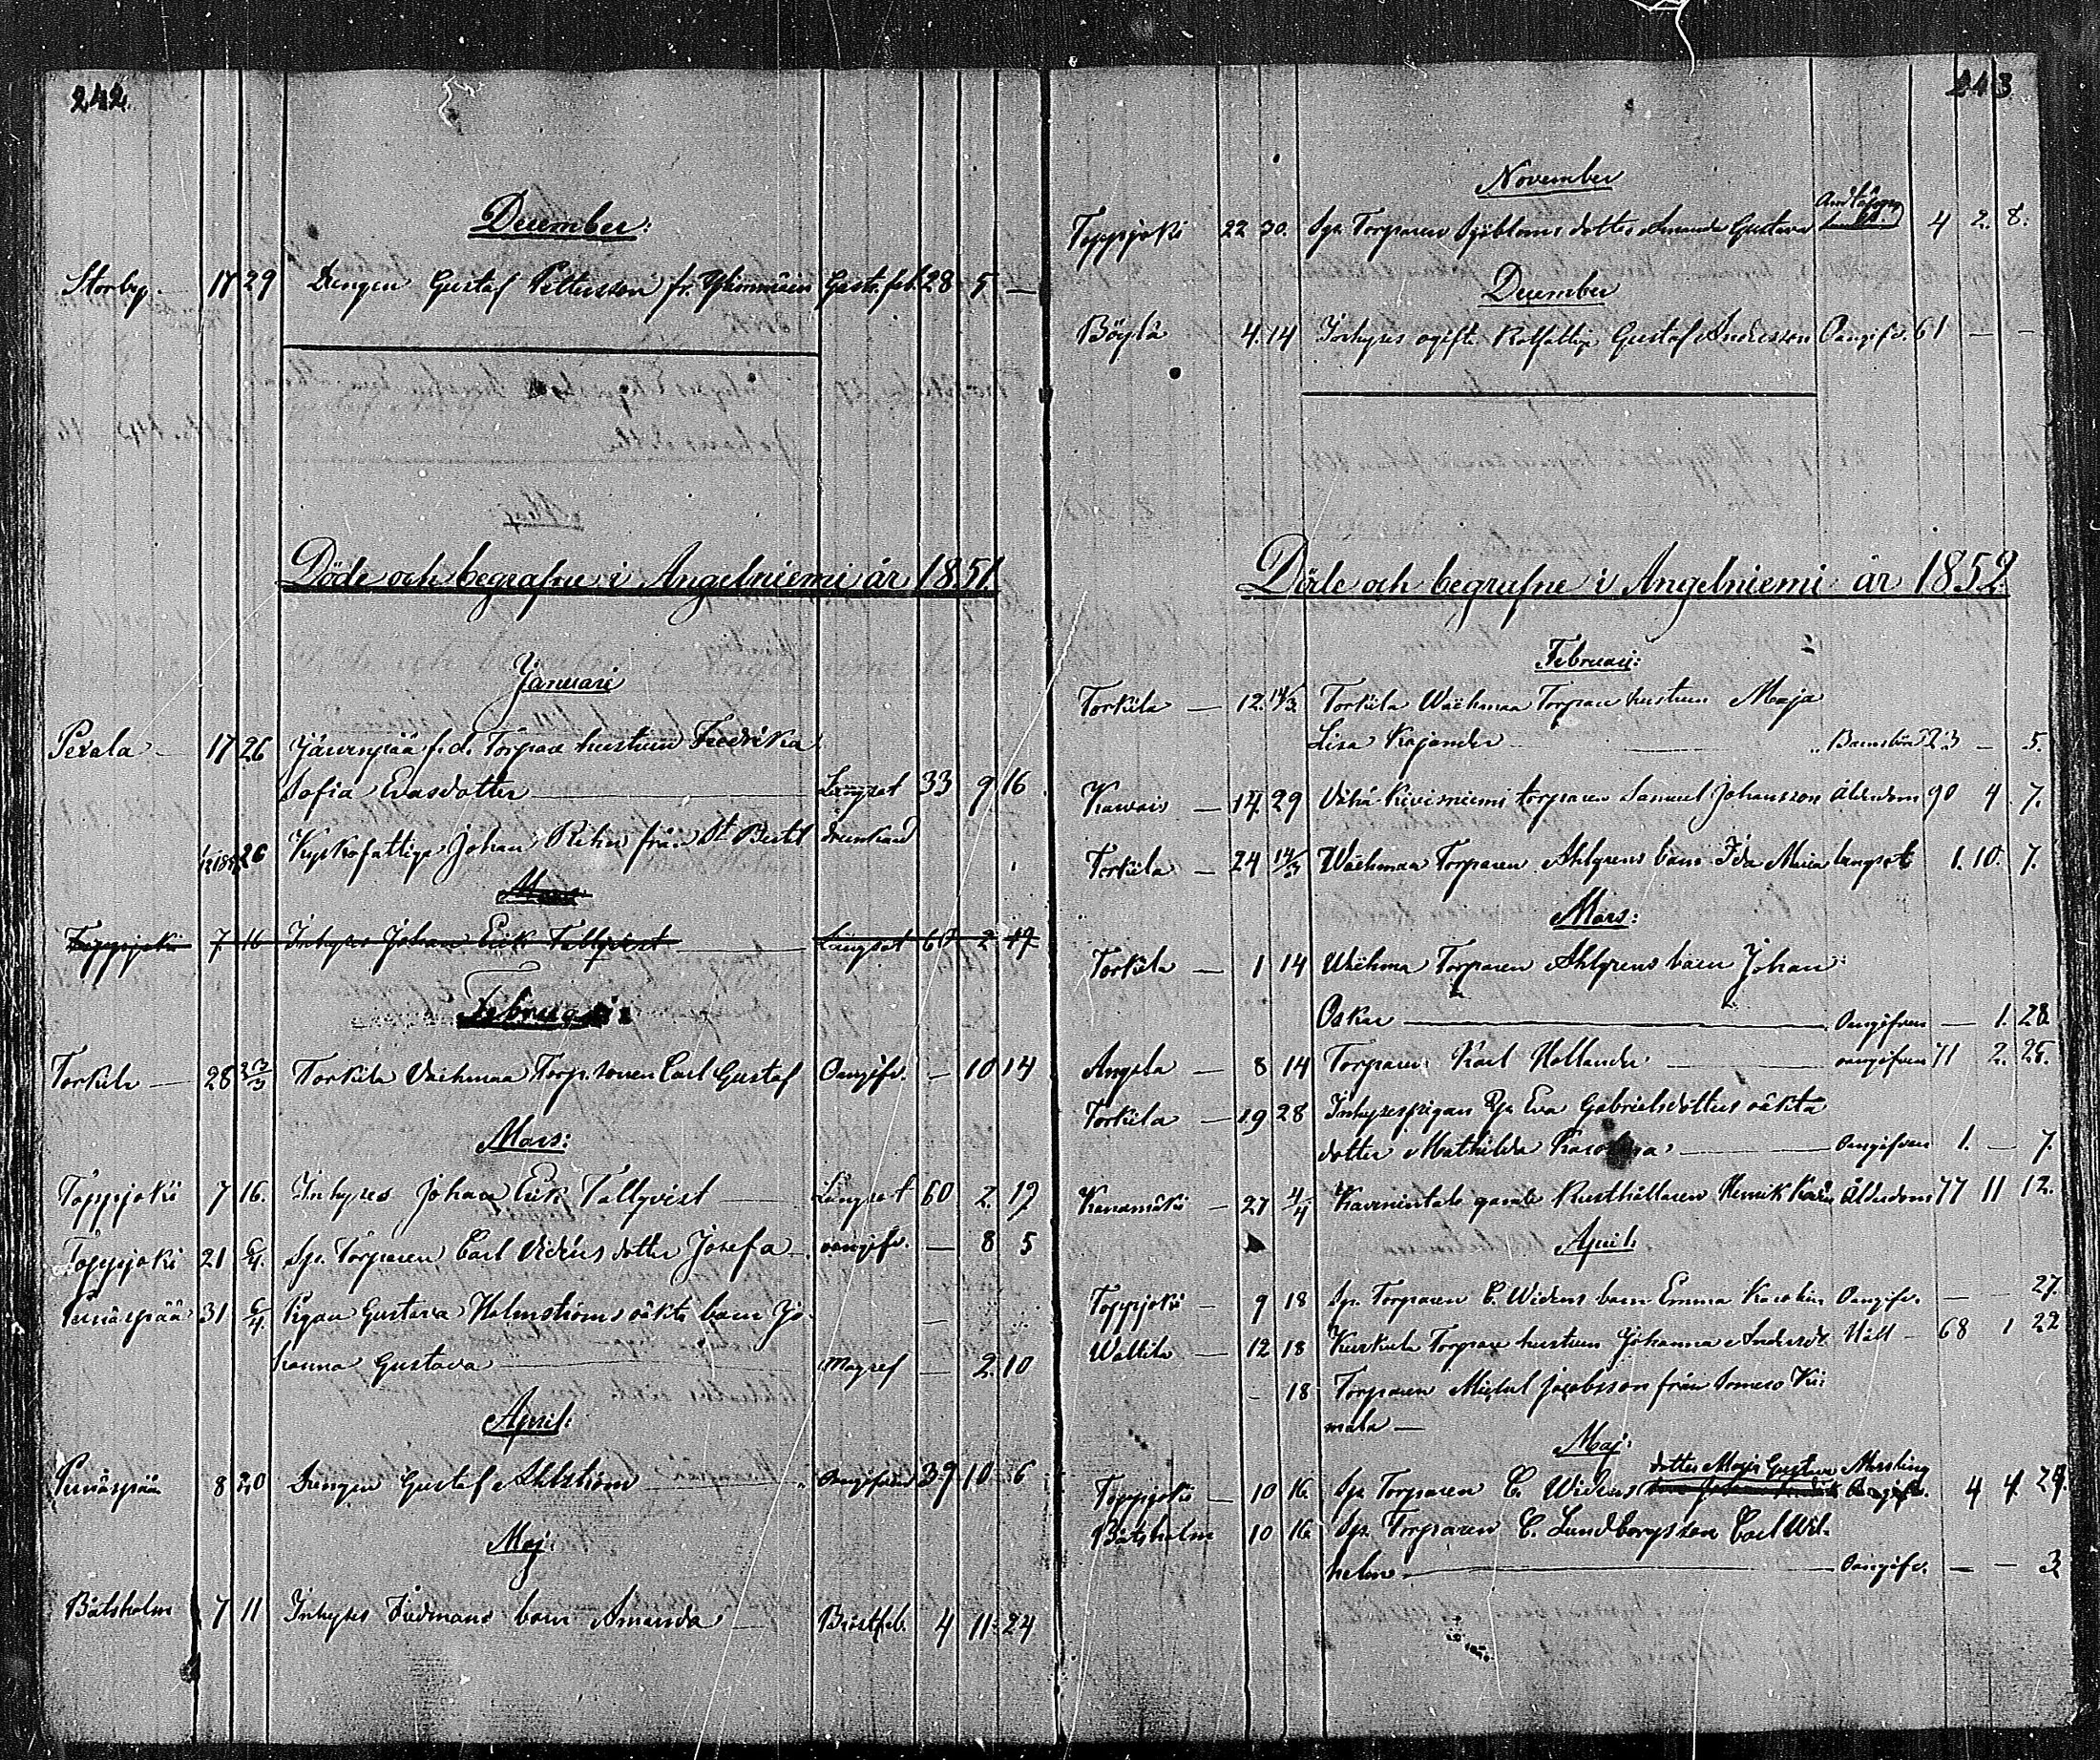 242
December:
Storby 17 29 Drengen Gustaf Pettersson fr. Gastr. feb. 28 5 —
Döde och begrafne i Angelniemi år 1851.
Januari
Perala 17 26 f. d. Torpare hustrun Fredrika
Sofia Ersdotter Lungsot 33 9 16
26 Kyrkofattige Johan från St Bertel drunknad
Mars
Toppjoki 7 16 Inhyses Johan Erik Tallqvist Lungsot 60 2 19
Februari
Torkila 28 Torkila Vaihmaa Torp. sonen Carl Gustaf Oangifv. — 10 14
Mars:
Toppjoki 7 16. Inhyses Johan Erik Tallqvist Lungsot 60 2. 19
Toppjoki 21 6/4. Sp. Torparen Carl Vidéns dotter Josefa oangifv. — 8 5
Peräspää 31 6/4. Pigan Gustava Holmströms oäkta barn Jo-
hanna Gustava Magref — 2. 10
April:
Peräspää 8 20 Drengen Gustaf Ahlström Oangifven 39 10 6
Maj
Båtsholm 7 11 Inhyses barn Amanda Bröstfeb. 4 11 24
243
November
Toppjoki 22 30. Sp. Torparen Sjöbloms dotter Amanda Gustava 4 2. 8.
December
Böylä 4. 14 Inhyses ogifte Rotfattige Gustaf Andersson Oangifv. 61 — —
Döde och begrafne i Angelniemi år 1852.
Februari:
Torkila — 12. 14/3. Torkila Waihmaa Torpare hustrun Maja
Lisa Kajander Barnsbörd 23 — 5.
Kawais — 14 29 Vähä-Kiviniemi torparen Samuel Johansson Ålderdom 90 4 7.
Torkila — 24 14/3 Waihmaa Torparen Ahlgrens barn Ida Maria lungsot 1. 10. 7.
Mars:
Torkila — 1 14 Waihma Torparen Ahlgrens barn Johan
Oskar Oangifven — 1. 28
Angela — 8 14 Torparen Karl Hollander oangifven 71 2. 25.
Torkila — 19 28 Inhysespigan Eva Gabrielsdotters oäkta
dotter Mathilda Karolina Oangifven 1. — 7.
— 27 4/4 gamle Rusthållaren Henrik Ålderdom 77 11 12.
April:
Toppjoki — 9 18 Sp. Torparen C. Widens barn Emma Karolina Oangifv. — — 27.
Wallila — 12 18 Kurkula Torpare hustrun Johanna Andersdr Håll 68 1 22
— 18 Torparen Michel Jacobsson från Somero
mala —
Maj:
dotter Maja Gustava Messling
Toppjoki — 10 16. Sp. Torparen C. Widens Oangifv. 4 4. 29.
Båtsholm 10 16 Sp. Torparen C. Lundborgs son Carl Wil-
helm Oangifv. — — 3